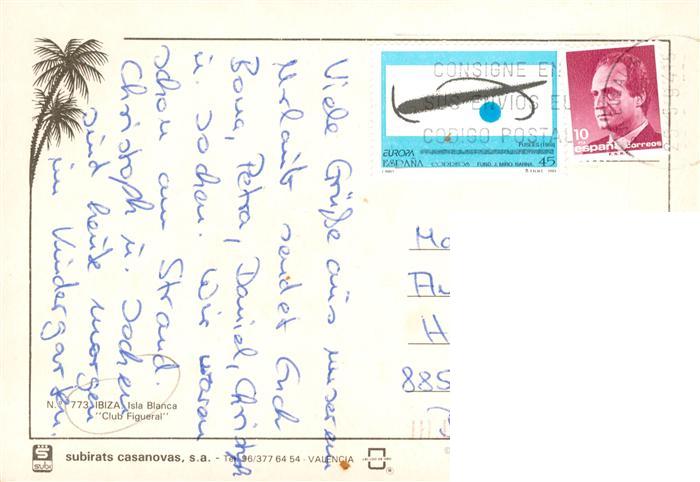 Viele Grüße aus unserem
Urlaub sendet Euch
Petra, Daniel, Christoph
u. Jochen. Wir waren
schon am Strand.
Christoph u. Jochen
sind heute morgen
im Kindergarten.
CONSIGNE EN
SUS ENVIOS EL
CODIGO POSTAL
EUROPA
ESPAÑA
CORREOS
FUND. J. MIRO. BARNA.
45
10
PTA
españa correos
H
885
N.º 773 IBIZA, Isla Blanca
"Club Figueral"
subi
subirats casanovas, s.a. - Tel. 96/377 64 54 - VALENCIA